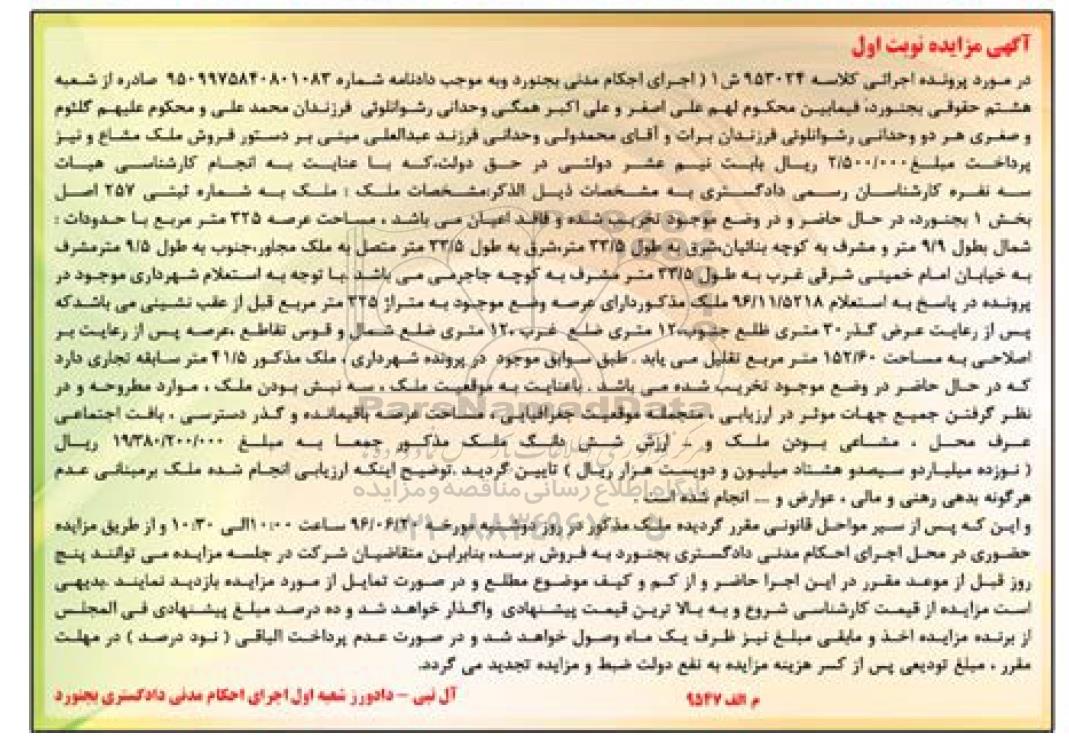 آگهی مزایده نوبت اول
در مورد پرونده اجرائی کلاسه ۹۵۳۰۲۴ ش۱ ( اجرای اجکام مدنی بجنورد وبه موجب دادنامه شماره ۹۵۰۹۹۷۵۸۴۰۸۰۱۰۸۳ صادره از شعبه
هشتم حقوقی بجنورد، فیمابین محکوم لهم علی اصغر و علی اکبر همگی وحدانی رشوانلوئی فرزندان محمد علی و محکوم علیهم گلثوم
و صغری هر دو وحدانی رشوانلوئی فرزندان برات و آقای محمدولی وحدانی فرزند عبدالعلی مبنی بر دستور فروش ملک مشاع و نیز
پرداخت مبلغ ۲/۵۰۰/۰۰۰ ریال بابت نیم عشر دولتی در حق دولت،که با عنایت به انجام کارشناسی هیات
سه نفره کارشناسان رسمی دادگستری به مشخصات ذیل الذکر:مشخصات ملک : ملک به شماره ثبتی ۲۵۷ اصل
بخش ۱ بجنورد، در حال حاضر و در وضع موجود تخریب شده و فاقد اعیان می باشد ، مساحت عرصه ۳۲۵ متر مربع با حدودات :
شمال بطول ۹/۹ متر و مشرف به کوچه بنائیان،شرق به طول ۳۳/۵ متر،شرق به طول ۳۳/۵ متر متصل به ملک مجاور،جنوب به طول ۹/۵ مترمشرف
به خیابان امام خمینی شرقی غرب به طول ۳۳/۵ متر مشرف به کوچه جاجرمی می باشد .با توجه به استعلام شهرداری موجود در
پرونده در پاسخ به استعلام ۹۶/۱۱/۵۲۱۸ ملک مذکوردارای عرصه وضع موجود به متراژ ۳۲۵ متر مربع قبل از عقب نشینی می باشدکه
پس از رعایت عرض گذر ۳۰ متری ظلع جنوب،۱۲ متری ضلع غرب ،۱۲ متری ضلع شمال و قوس تقاطع ،عرصه پس از رعایت بر
اصلاحی به مساحت ۱۵۲/۶۰ متر مربع تقلیل می یابد . طبق سوابق موجود در پرونده شهرداری ، ملک مذکور ۴۱/۵ متر سابقه تجاری دارد
که در حال حاضر در وضع موجود تخریب شده می باشد . باعنایت به موقعیت ملک ، سه نبش بودن ملک ، موارد مطروحه و در
نظر گرفتن جمیع جهات موثر در ارزیابی ، منجمله موقعیت جغرافیایی ، مساحت عرصه باقیمانده و گذر دسترسی ، بافت اجتماعی
عرف محل ، مشاعی بودن ملک و ... ارزش شش دانگ ملک مذکور جمعا به مبلغ ۱۹/۳۸۰/۲۰۰/۰۰۰ ریال
( نوزده میلیاردو سیصدو هشتاد میلیون و دویست هزار ریال ) تایین گردید .توضیح اینکه ارزیابی انجام شده ملک برمبنائی عدم
هرگونه بدهی رهنی و مالی ، عوارض و ... انجام شده است .
و این که پس از سیر مواحل قانونی مقرر گردیده ملک مذکور در روز دوشنبه مورخه ۹۶/۰۶/۲۰ ساعت ۱۰:۰۰الی ۱۰:۳۰ و از طریق مزایده
حضوری در محل اجرای احکام مدنی دادگستری بجنورد به فروش برسد، بنابراین متقاضیان شرکت در جلسه مزایده می توانند پنج
روز قبل از موعد مقرر در این اجرا حاضر و از کم و کیف موضوع مطلع و در صورت تمایل از مورد مزایده بازدید نمایند .بدیهی
است مزایده از قیمت کارشناسی شروع و به بالا ترین قیمت پیشنهادی واگذار خواهد شد و ده درصد مبلغ پیشنهادی فی المجلس
از برنده مزایده اخذ و مابقی مبلغ نیز ظرف یک ماه وصول خواهد شد و در صورت عدم پرداخت الباقی ( نود درصد ) در مهلت
مقرر ، مبلغ تودیعی پس از کسر هزینه مزایده به نفع دولت ضبط و مزایده تجدید می گردد.
م الف ۹۵۴۷
آل نبی - دادورز شعبه اول اجرای احکام مدنی دادگستری بجنورد
ParsNamadData
پایگاه اطلاع رسانی مناقصه و مزایده